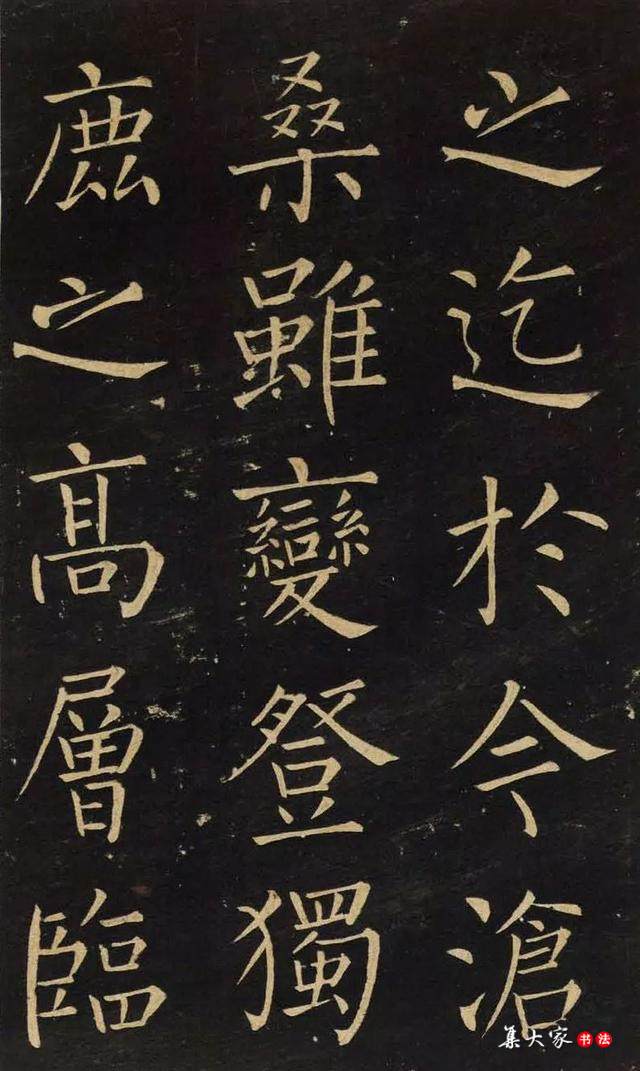 之迄於今滄
桑雖變登獨
鹿之髙層臨
集大家 书法